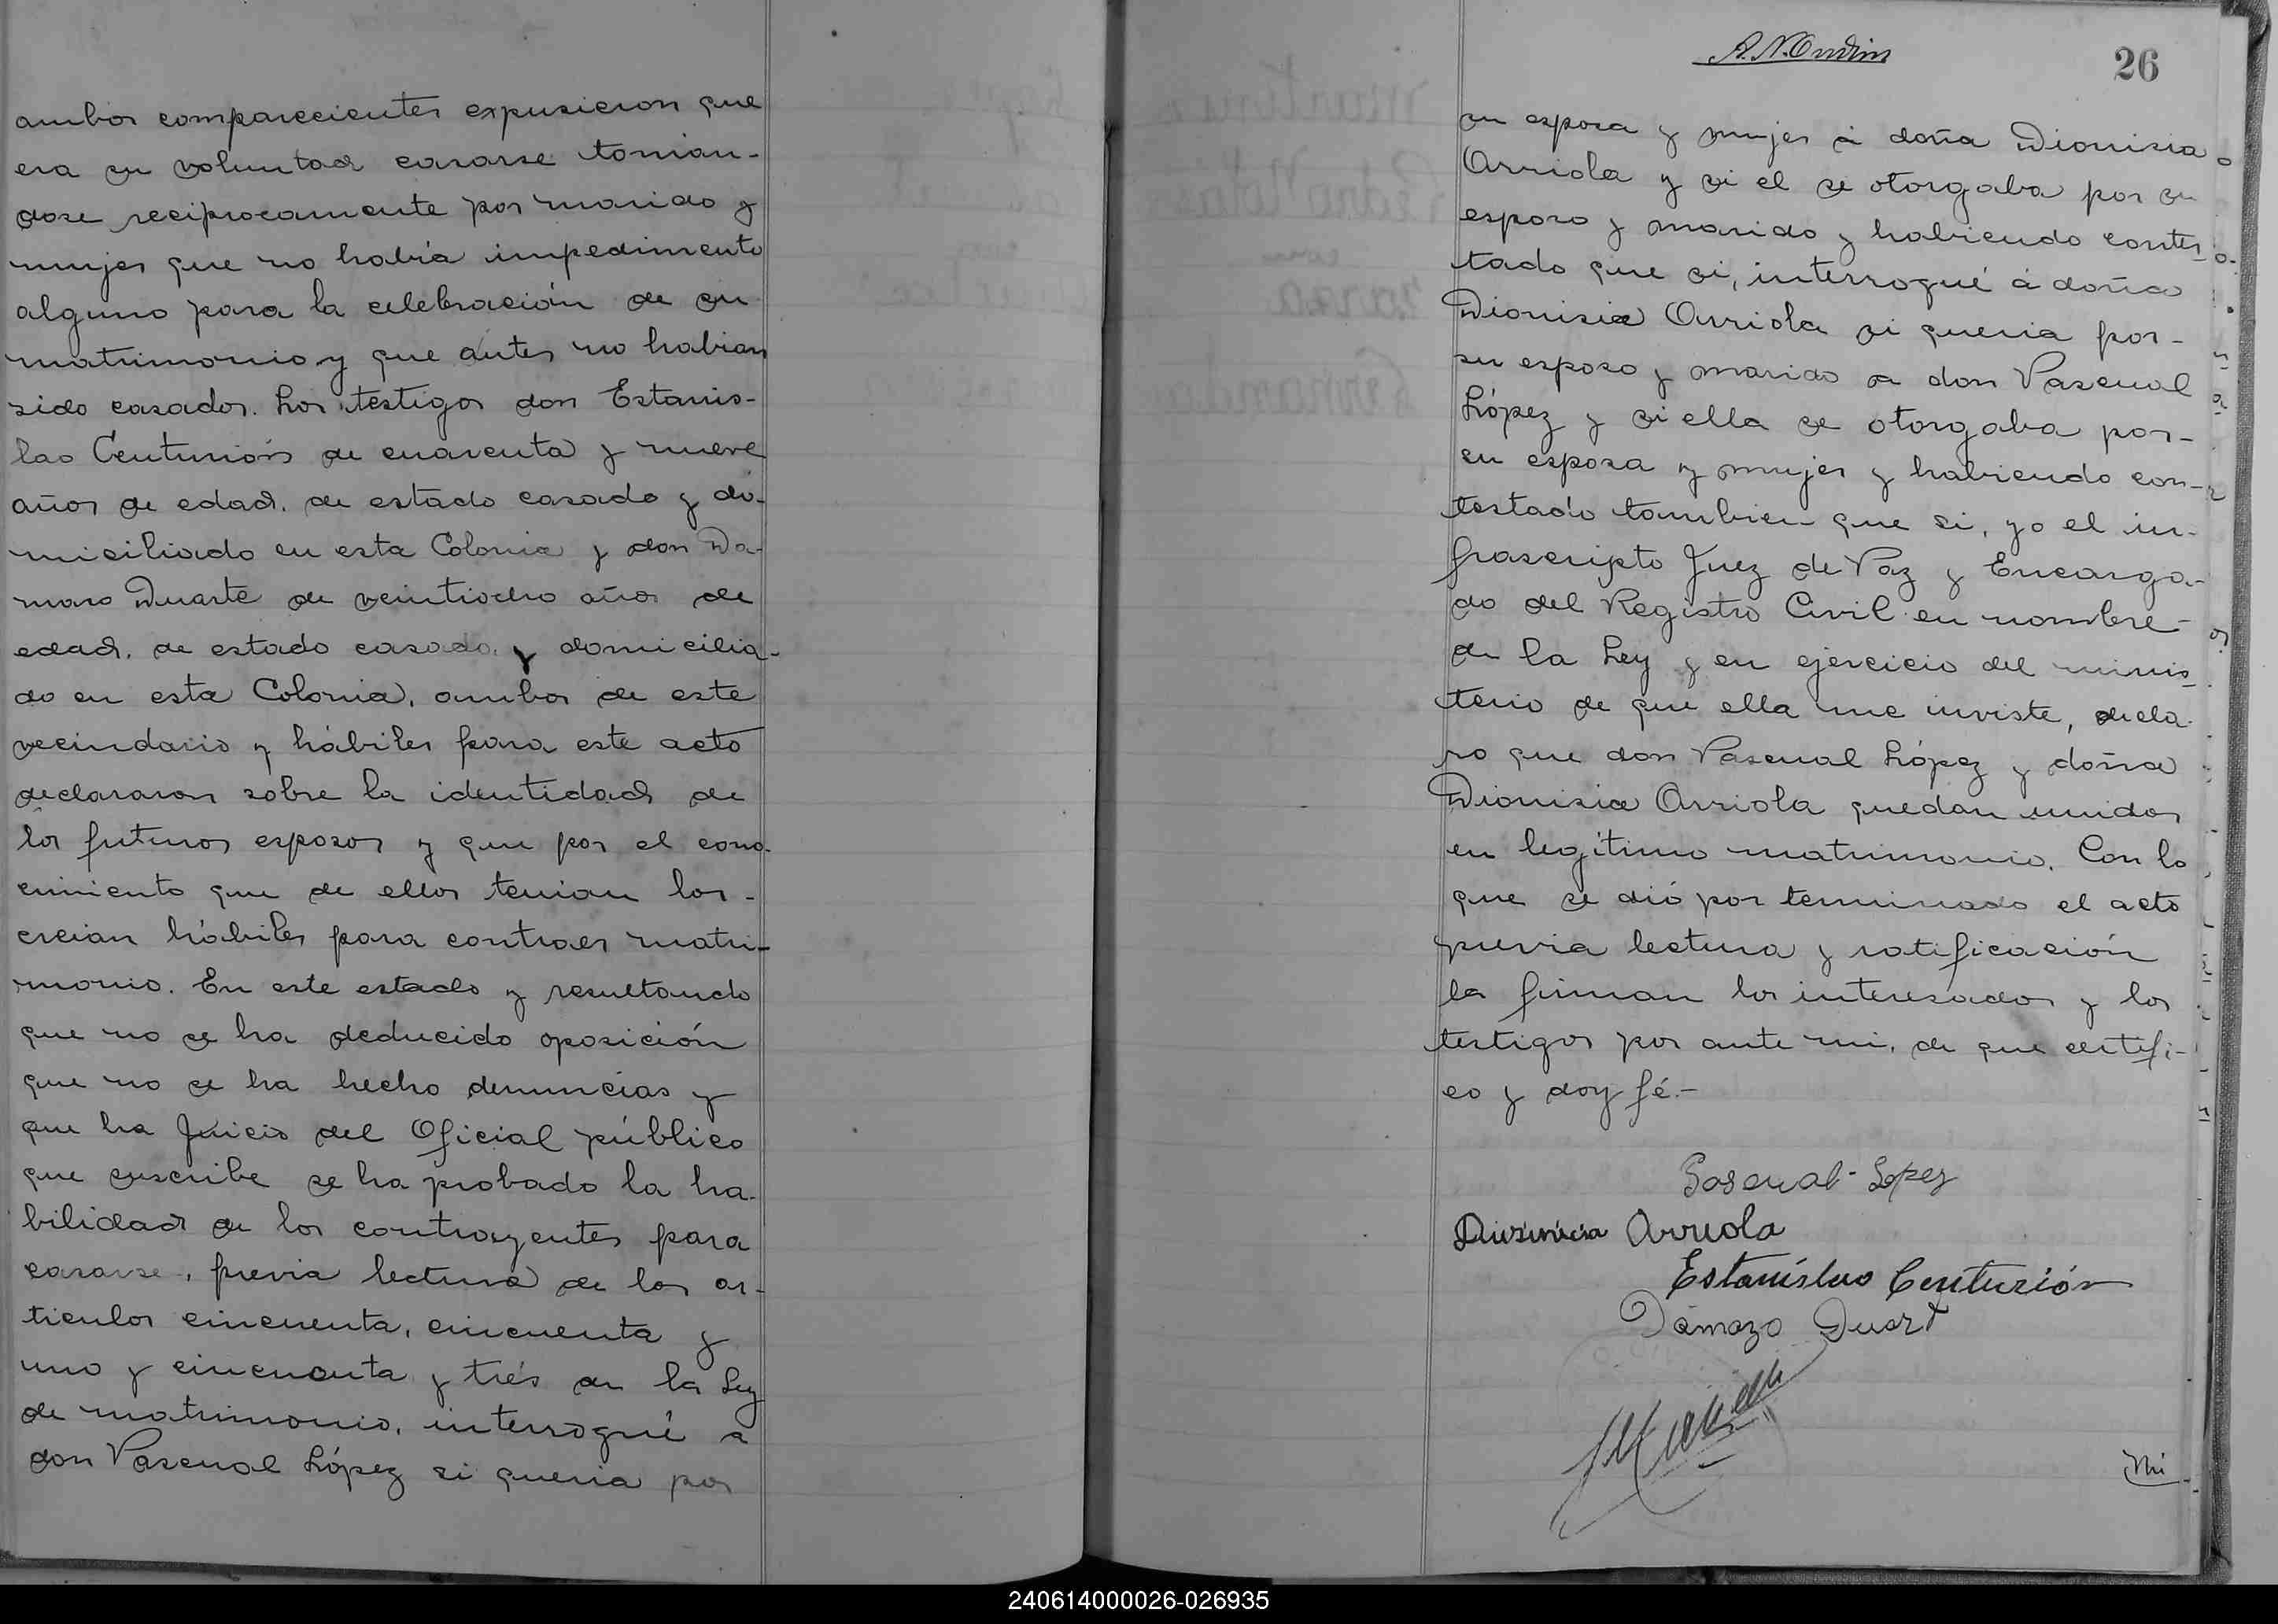 ambos comparecientes expusieron que
era su voluntad casarse tomán-
dose reciprocamente por marido y
mujer que no había impedimento
alguno para la celebración de su
matrimonio y que antes no habian
sido casados. Los testigos don Estanis-
lao Centurión de cuarenta y nueve
años de edad, de estado casado y do-
miciliado en esta Colonia y don Da-
maso Duarte de veintiocho años de
edad, de estado casado, y domicilia-
do en esta Colonia, ambos de este
vecindario y hábiles para este acto
declararon sobre la identidad de
los futuros esposos y que por el cono-
cimiento que de ellos tenian los-
creian hábiles para contraer matri-
monio. En este estado y resultando
que no se ha deducido oposición
que no se ha hecho denuncias y
que ha Juicio del Oficial público
que suscribe se ha probado la ha-
bilidad de los contrayentes para
casarse, previa lectura de los ar-
ticulos cincuenta, cincuenta y
uno y cincuenta y trés de la Ley
de matrimonio, interrogué a
don Pascual López si queria por
26
su esposa y mujer á doña Dionisia
Arriola y si el se otorgaba por su
esposo y marido y habiendo contes-
tado que si, interrogué á doña
Dionisia Arriola si queria por-
su esposo y marido a don Pascual
López y si ella se otorgaba por-
su esposa y mujer y habiendo con-
testado tambien que si, yo el in-
frascripto Juez de Paz y Encarga-
do del Registro Civil en nombre-
de la Ley y en ejercicio del minis-
terio de que ella me inviste, decla-
ro que don Pascual López y doña
Dionisia Arriola quedan unidos
en legítimo matrimonio. Con lo
que se dió por terminado el acto
previa lectura y ratificación
la firman los interesados y los
testigos por ante mi, de que certifi-
co y doy fé.-
Pascual Lopez
Arriola
Estanislao Centurión
Dámazo Duart
240614000026-026935